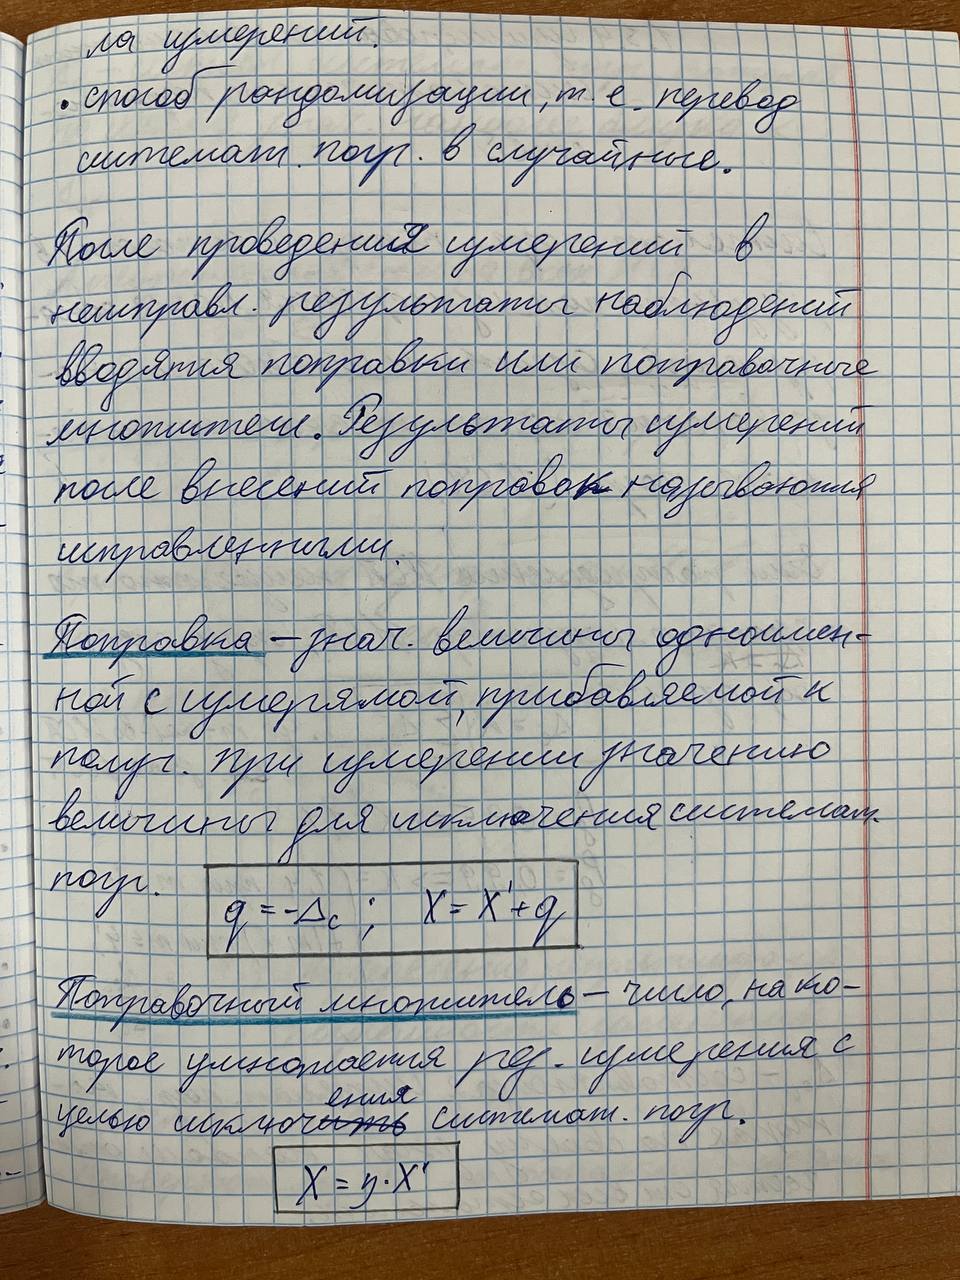 ла измерений.
• способ рандомизации, т.е. перевод
системат. погр. в случайные.
После проведений измерений в
неисправл. результаты наблюдений
вводятся поправки или поправочные
множители. Результаты измерений
после внесений поправок называются
исправленными.
Поправка – знач. величины одноимен-
ной с измерямой, прибавляемой к
получ. при измерении значению
величины для исключения системат.
погр.
q = -Δc ; X = X' + q
Поправочный множитель – число, на ко-
торое умножается рез. измерения с
целью исключения системат. погр.
X = η · X'